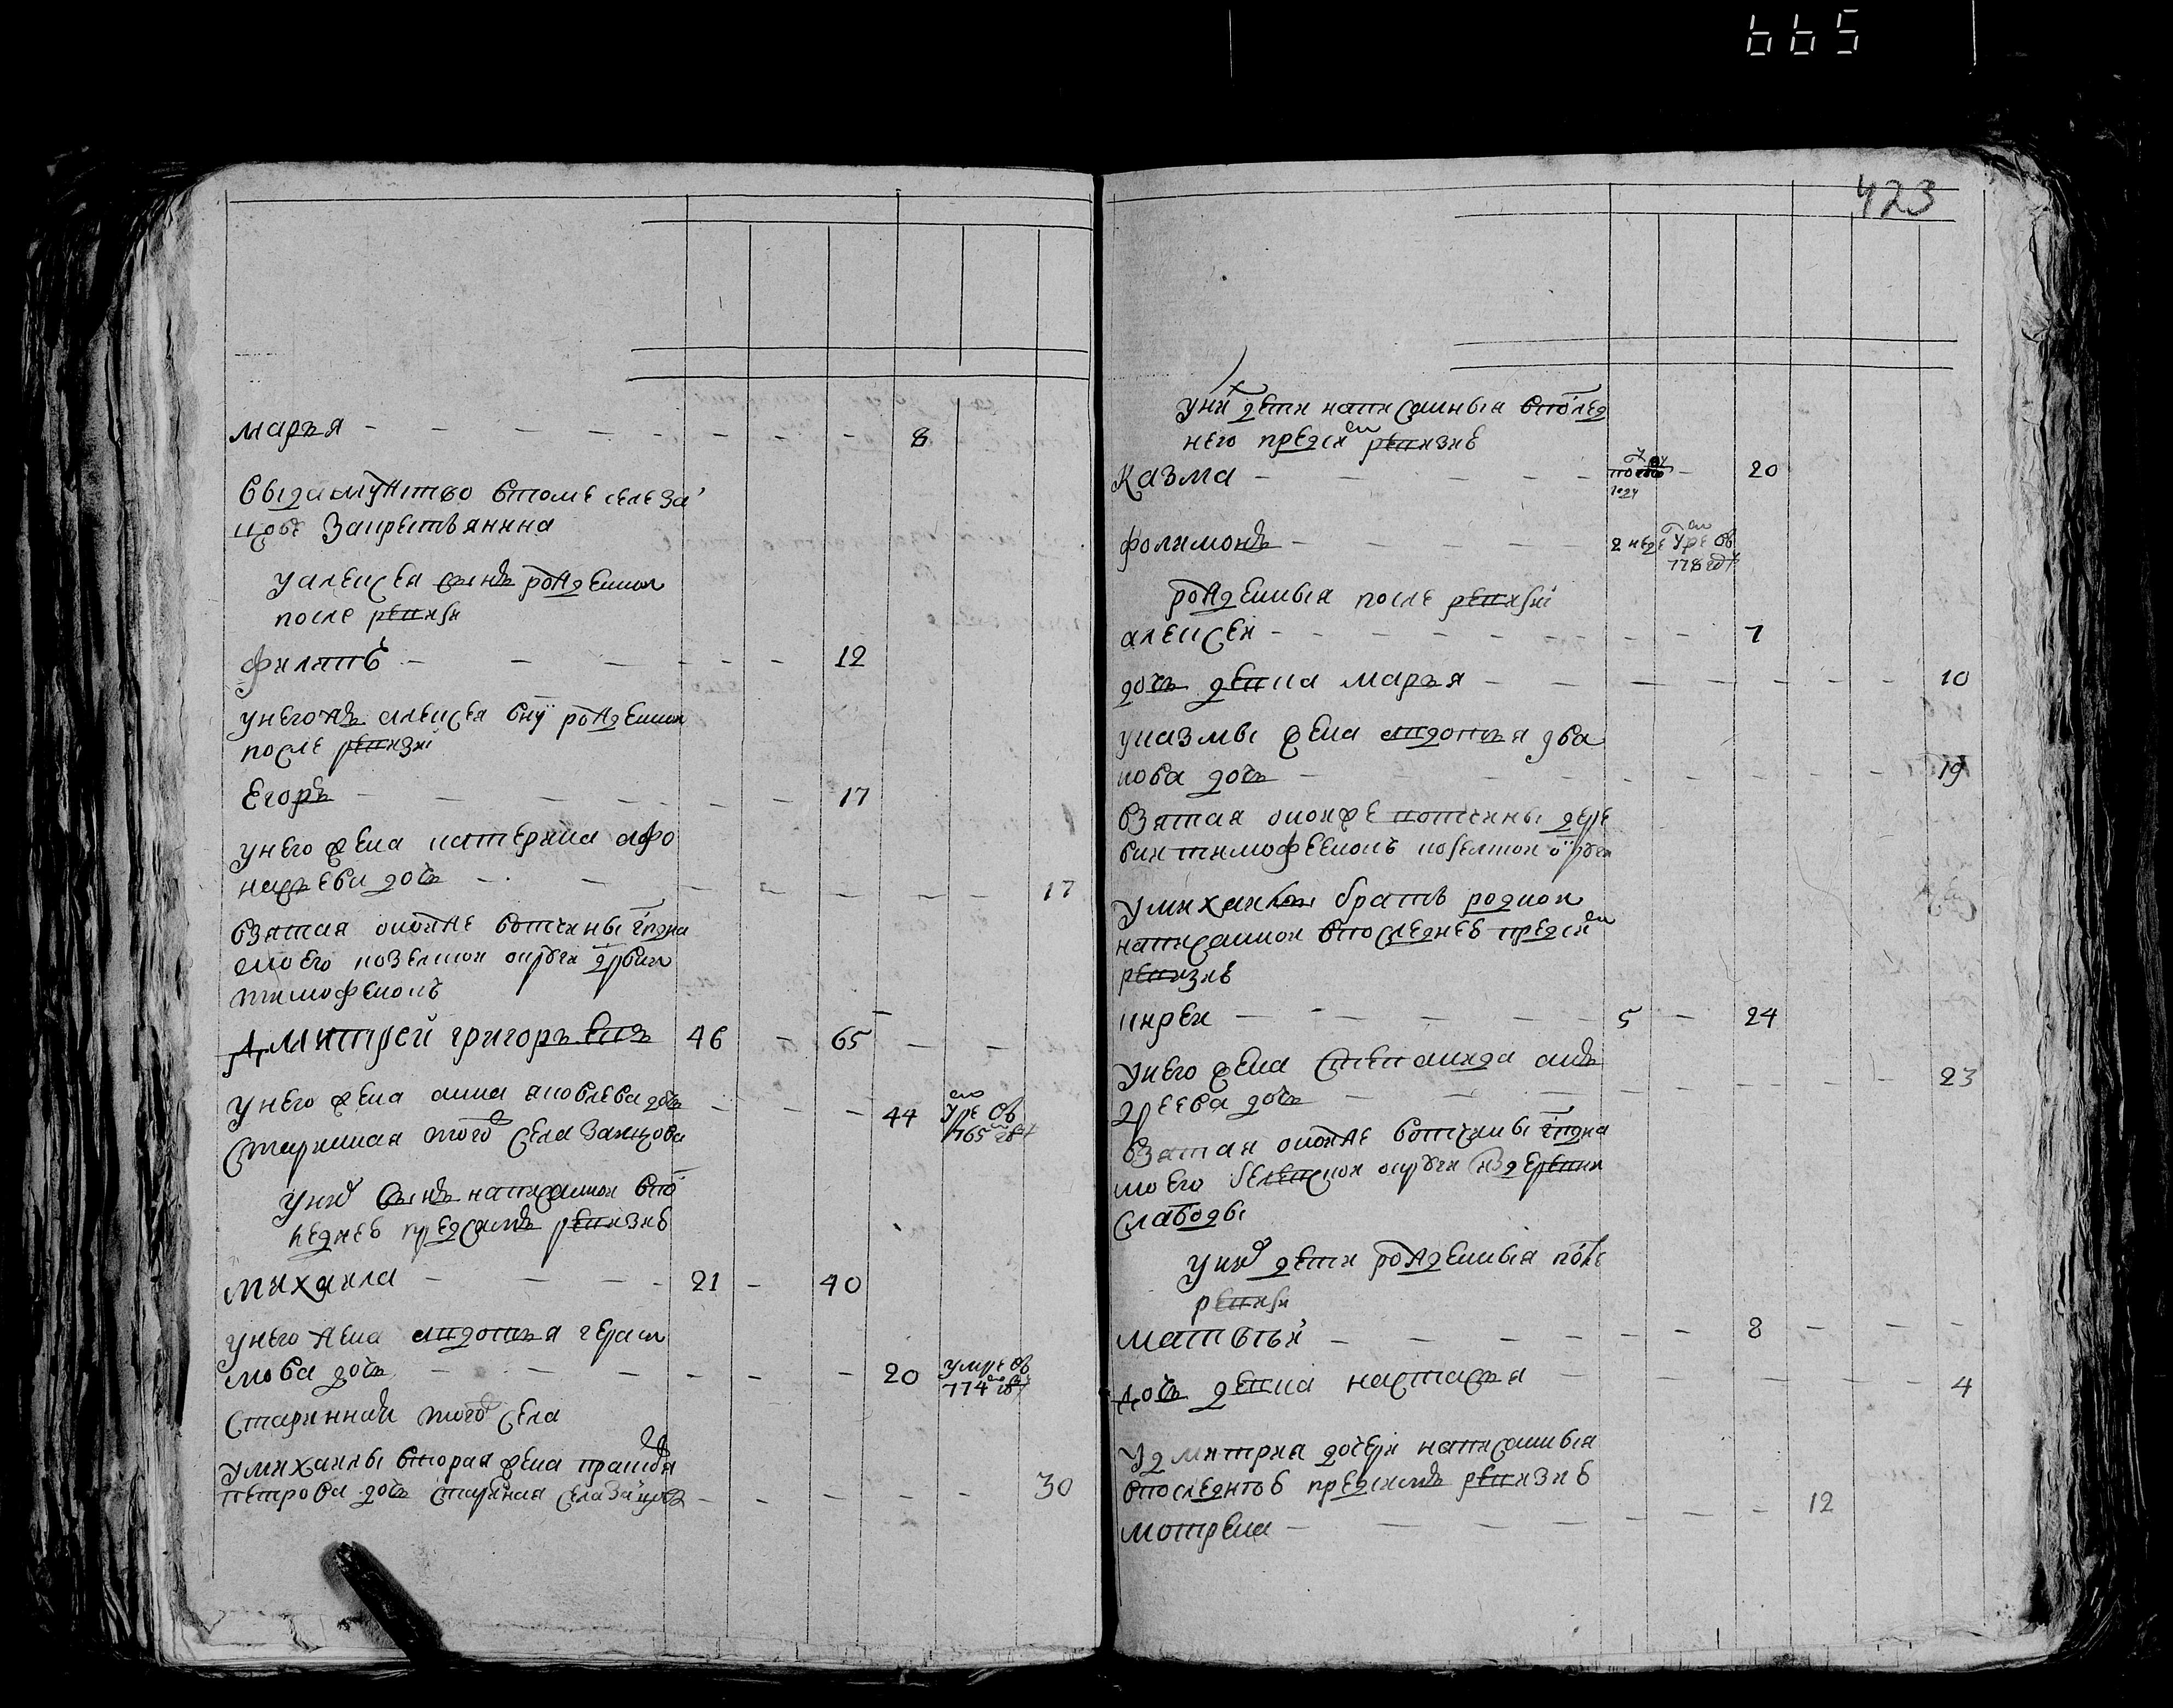 665
423
марья - - - - - - - - 8
выдамужство втомъ селе за
цове закрестьянина
уалексея сынъ рожденной
после ревизи
филатъ - - - - - 12
унегожъ алексея внукъ рожденной
после ревизи
Егоръ - - - - - - 17
унего жена катерина афо
насьева дочь - - - - - - - 17
взятая окожже вотчины гпдна
моего козелской округи дрвни
тимофевой
Дмитрей григорьевъ 46 - 65 - -
унего жена анна яковлева дочь - - - 44 умре въ
765 году
старинная того села занцова
уних сынъ написанной впо
леднев предсимъ ревизив
михаила - - - - 21 - 40
унего жена авдотья гераси
мова дочь - - - - - - 20 умре въ
774 году
старинная того села
умихаилы вторая жена прасковя
петрова дочь старинная села занцова - - - - - 30
уних дети написанныя вполед
него предсим ревизив
Казма - - - - - 20
году
фолимонъ - - - - 2 неде умре въ
778 год
рожденныя после ревизии
алексей - - - - - - - - 7
дочь девка марья - - - - - - - - 10
указмы жена авдотья
кова дочь - - - - - - - - 19
взятая окожже вотчины дере
вни тимофеевой козелской округи
умихаилы братъ родной
написанной впоследнев предсим
ревизив
андрей - - - - - 5 - 24
унего жена степанида ан
дреева дочь - - - - - - - - 23
взятая окожже вотчины гпдна
моего белевской округи из деревни
слабоды
уних дети рожденныя после
ревизи
матвей - - - - - - - 8 - - -
дочь девка настасья - - - - - - - 4
удмитрия дочери написанныя
впоследнюю предсимъ ревизив
мотрена - - - - - - - 12